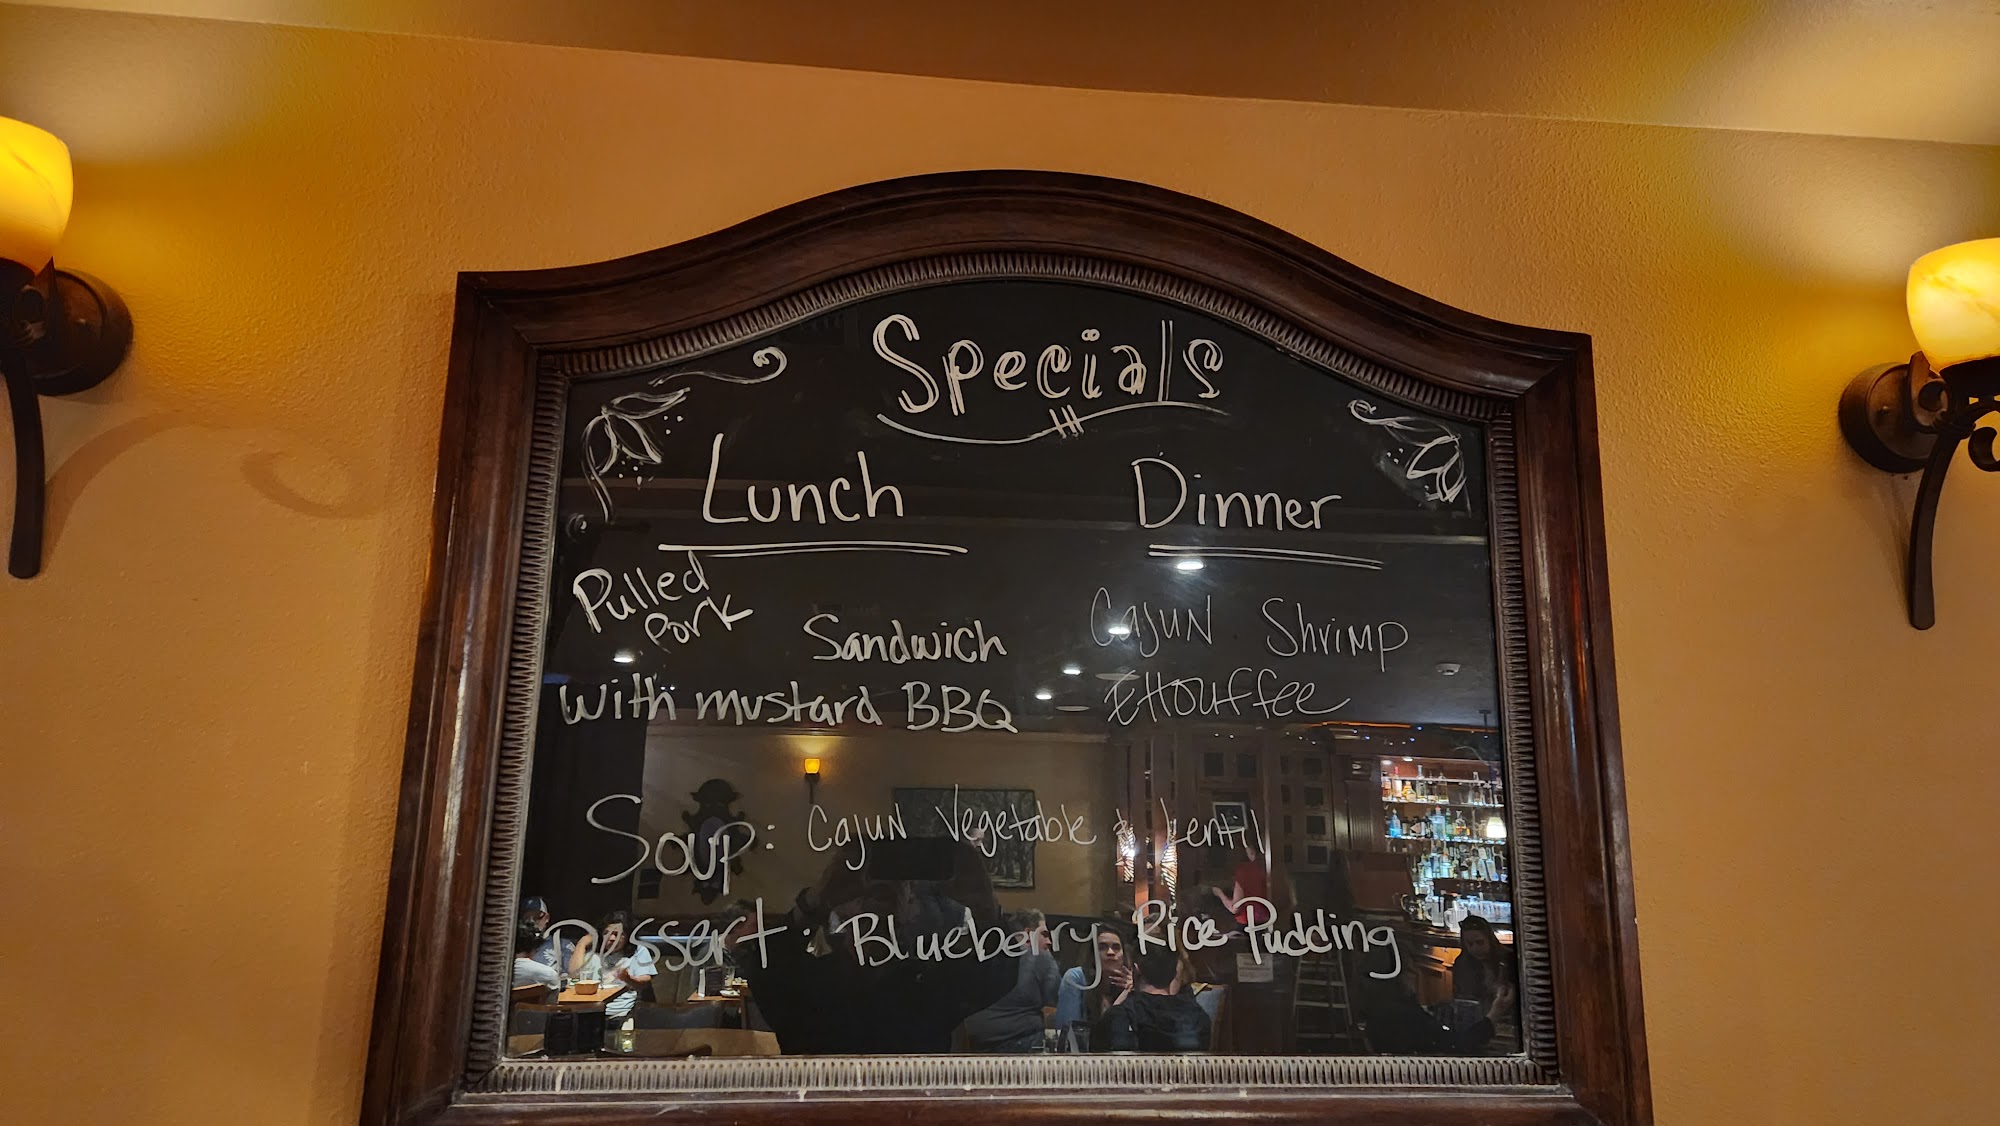 Specials
Lunch
Pulled
Pork
Sandwich
with mustard BBQ
Dinner
Cajun Shrimp
Ettouffee
Soup: Cajun Vegetable & Lentil
Dessert: Blueberry Rice Pudding